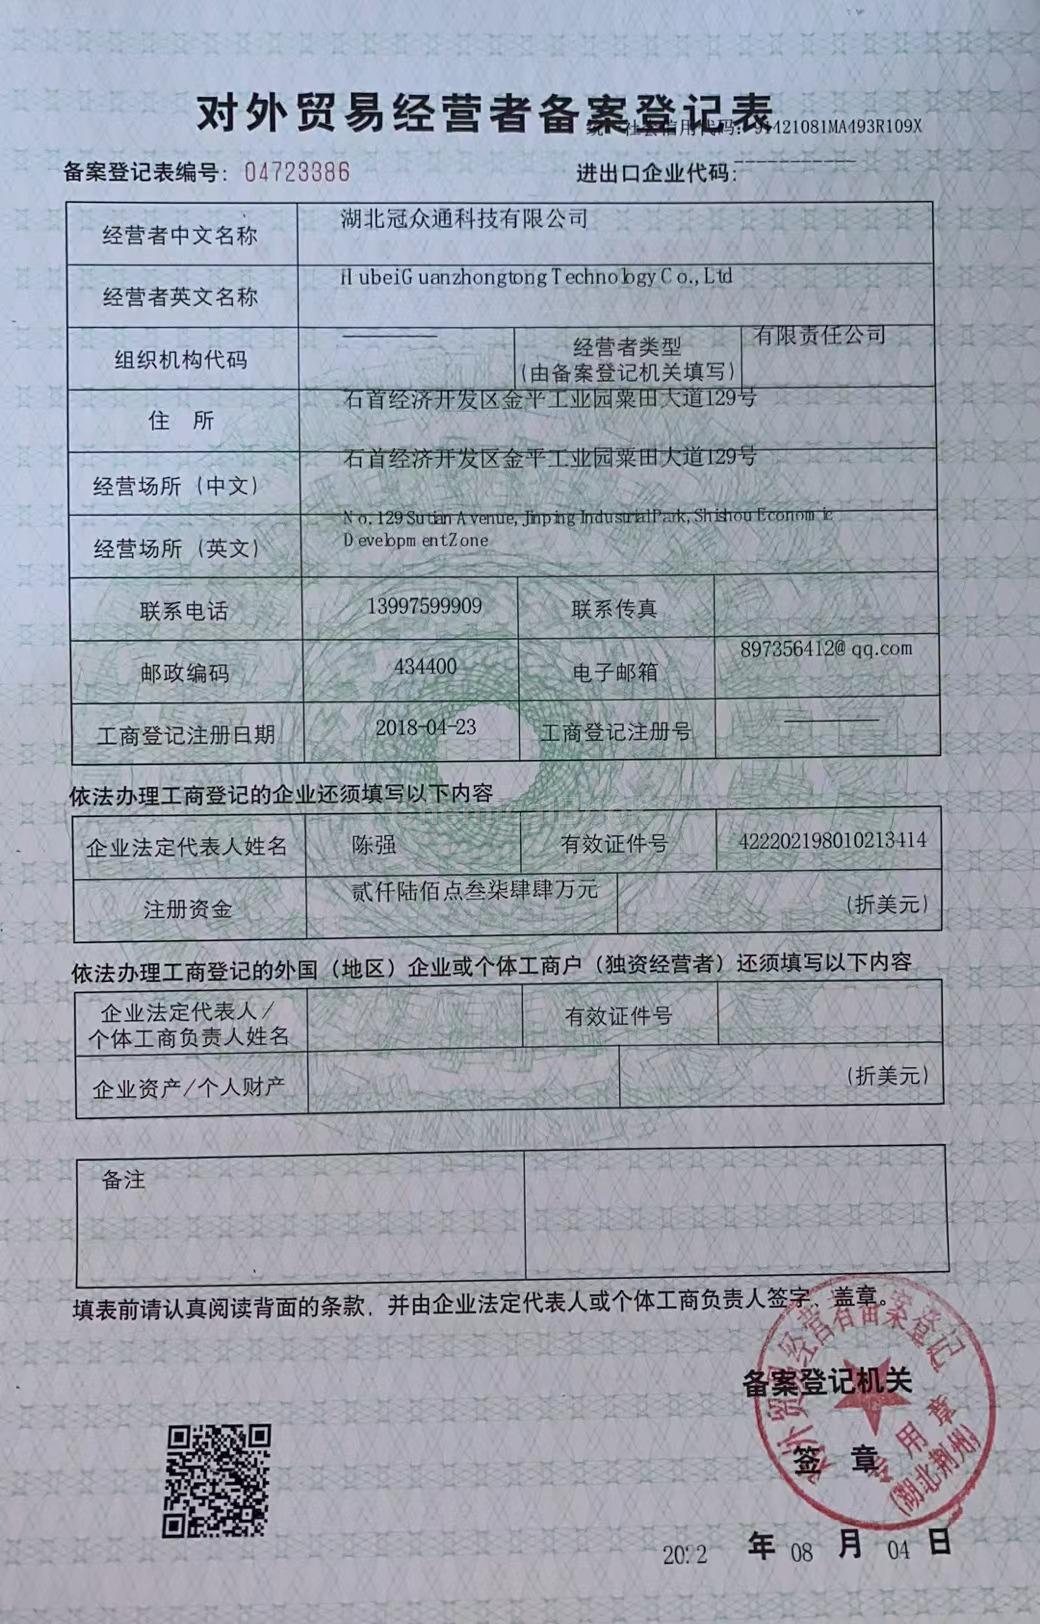 对外贸易经营者备案登记表
统一社会信用代码：91421081MA493R109X
备案登记表编号： 04723386
进出口企业代码：
经营者中文名称 湖北冠众通科技有限公司
经营者英文名称 HubeiGuanzhongtong Technology Co.,Ltd
组织机构代码 经营者类型 有限责任公司
(由备案登记机关填写)
住 所 石首经济开发区金平工业园粟田大道129号
经营场所（中文） 石首经济开发区金平工业园粟田大道129号
经营场所（英文） No.129 Sutian Avenue, Jinping Industrial Park, Shishou Economic
Development Zone
联系电话 13997599909 联系传真
邮政编码 434400 电子邮箱 897356412@qq.com
工商登记注册日期 2018-04-23 工商登记注册号
依法办理工商登记的企业还须填写以下内容
企业法定代表人姓名 陈强 有效证件号 422202198010213414
注册资金 贰仟陆佰点叁柒肆肆万元 (折美元)
依法办理工商登记的外国（地区）企业或个体工商户（独资经营者）还须填写以下内容
企业法定代表人/
个体工商负责人姓名 有效证件号
企业资产/个人财产 (折美元)
备注
填表前请认真阅读背面的条款，并由企业法定代表人或个体工商负责人签字、盖章。
备案登记机关
签 章
对外贸易经营者备案登记
专用章
(湖北荆州)
2022 年 08 月 04 日